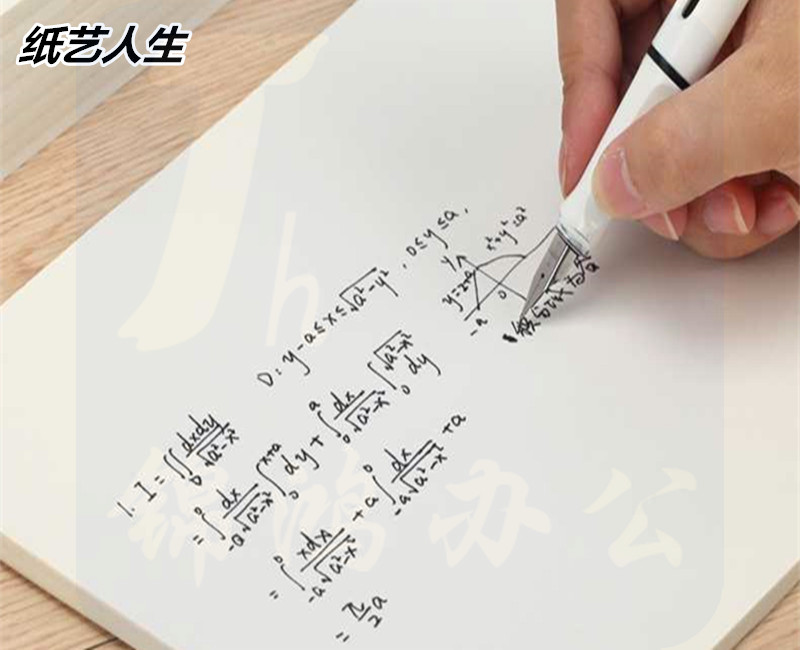 纸艺人生
D: y-a≤x≤√(a²-y²), 0≤y≤a,
x²+y²=a²
y
y=x+a
-a
0
1. I=∬_D dxdy/√(a²-x²)
=∫_{-a}^0 dx/√(a²-x²) ∫_0^{x+a} dy + ∫_0^a dx/√(a²-x²) ∫_0^{√(a²-x²)} dy
=∫_{-a}^0 xdx/√(a²-x²) + a∫_{-a}^0 dx/√(a²-x²) + a
=π/2 a
锦鸿办公